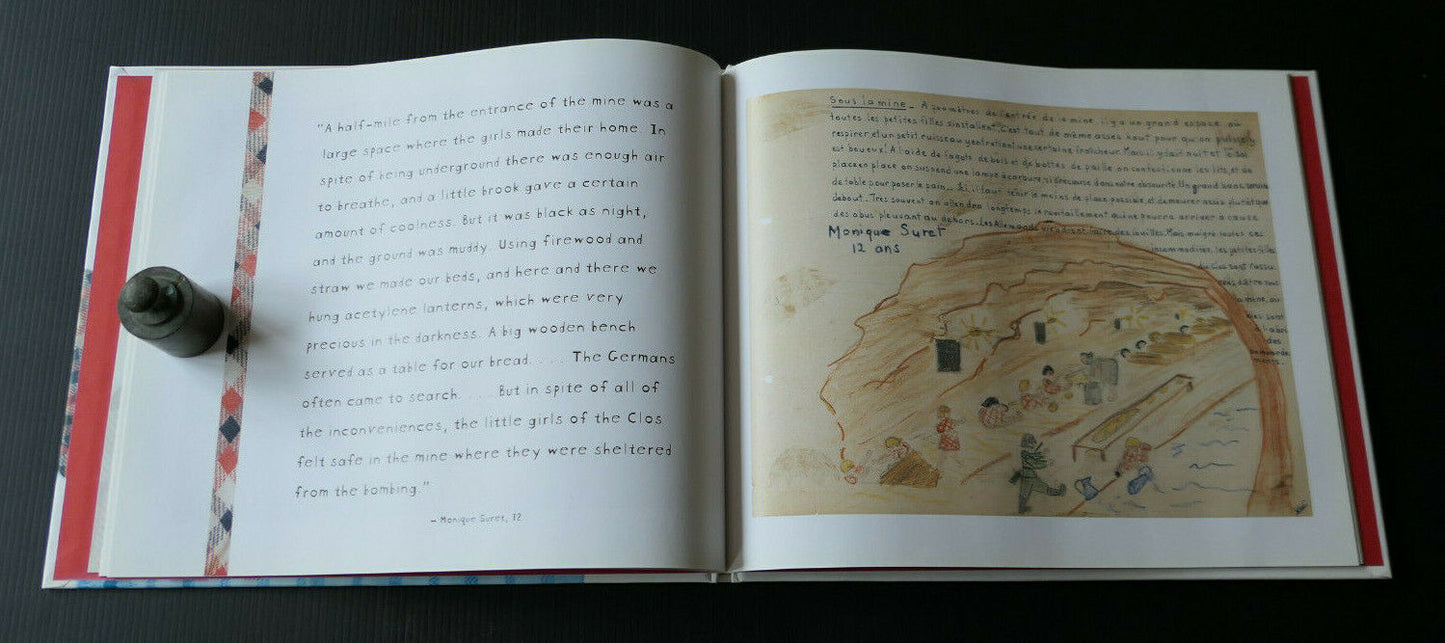 "A half-mile from the entrance of the mine was a
large space where the girls made their home. In
spite of being underground there was enough air
to breathe, and a little brook gave a certain
amount of coolness. But it was black as night,
and the ground was muddy. Using firewood and
straw we made our beds, and here and there we
hung acetylene lanterns, which were very
precious in the darkness. A big wooden bench
served as a table for our bread. . . . The Germans
often came to search. . . . But in spite of all of
the inconveniences, the little girls of the Clos
felt safe in the mine where they were sheltered
from the bombing."
– Monique Suret, 12
Sous la mine _ A mètres de l'entrée de la mine il y a un grand espace, où
toutes les petites filles s'installent. C'est tout de même assez haut pour qu'on puisse y
respirer, et un petit ruisseau y entretient une certaine fraîcheur. Mais il y fait nuit et le sol
est boueux! A l'aide de fagots de bois et de bottes de paille, on les lits, et de
place en place on suspend une lampe à carbure, si dans notre obscurité. Un grand banc
de table pour poser le pain... il faut tenir le moins de place possible et demeurer
debout. Très souvent on attendra longtemps le ravitaillement qui ne pourra arriver à cause
des obus pleuvant au dehors. Les Allemands viendront faire des fouilles. Mais malgré toutes ces
Monique Suret
12 ans
incommodités, les petites filles
du Clos sont
la mine, où
à l'abri
des